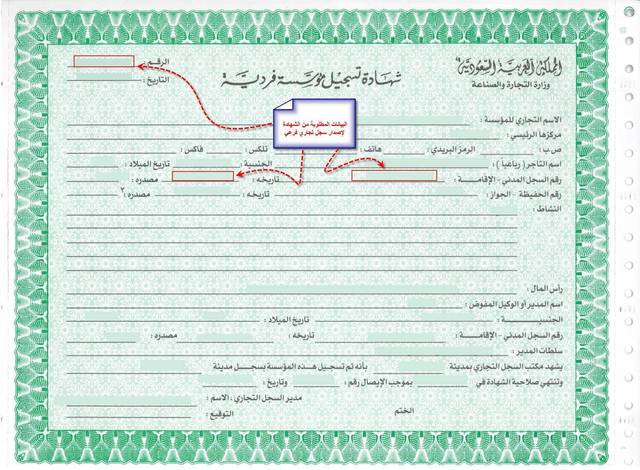 المملكة العربية السعودية
وزارة التجارة والصناعة
شهادة تسجيل مؤسسة فردية
الرقم :
التاريخ :
البيانات المطلوبة من الشهادة
لإصدار سجل تجاري فرعي
الاسم التجاري للمؤسسة :
مركزها الرئيسي :
ص.ب : الرمز البريدي : هاتف : تلكس : فاكس :
اسم التاجر ( رباعياً ) : الجنسية : تاريخ الميلاد :
رقم السجل المدني - الإقامة : تاريخه : مصدره :
رقم الحفيظة - الجواز : تاريخه : مصدره :
النشاط :
رأس المال :
اسم المدير أو الوكيل المفوض :
الجنسية : تاريخ الميلاد :
رقم السجل المدني - الإقامة : تاريخه : مصدره :
سلطات المدير :
يشهد مكتب السجل التجاري بمدينة بأنه تم تسجيل هذه المؤسسة بسجل مدينة
وتنتهي صلاحية الشهادة في بموجب الإيصال رقم : وتاريخ :
مدير السجل التجاري : الاسم :
الختم التوقيع :